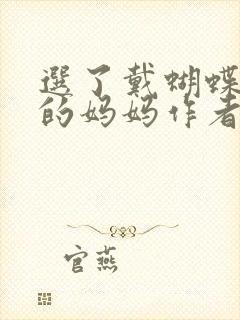 選了戴蝴蝶
的妈妈作者
官燕